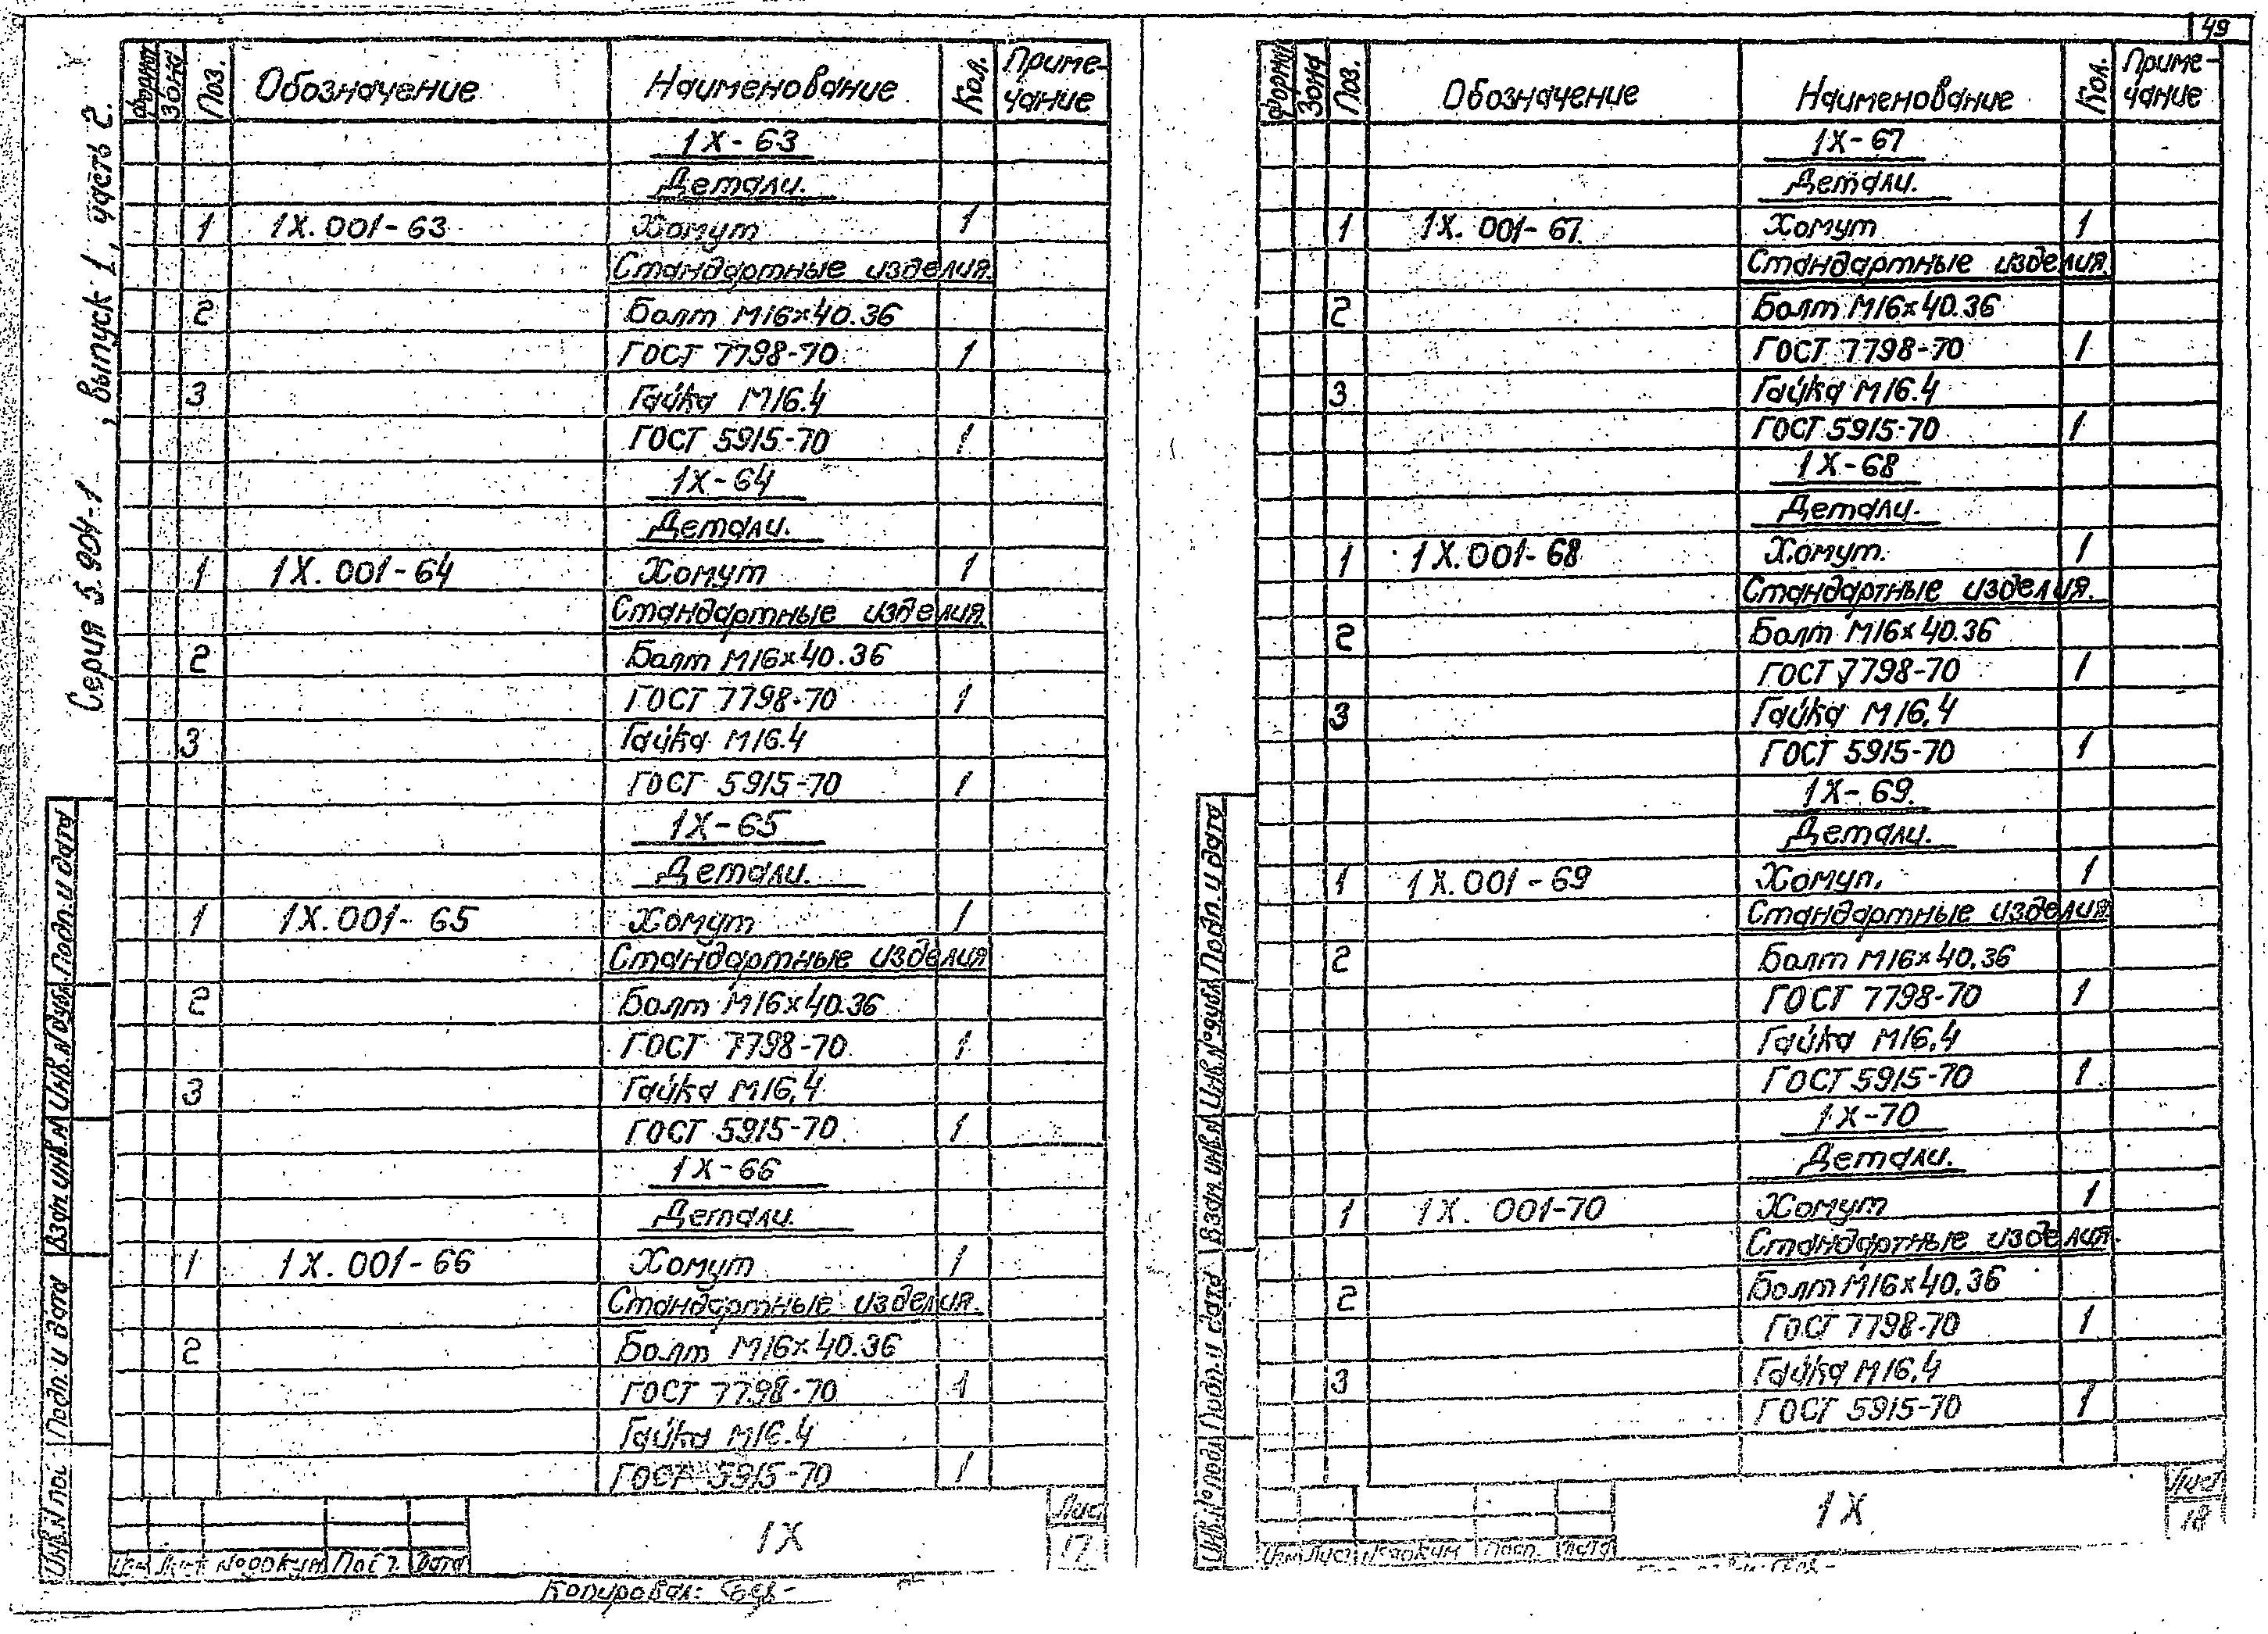 49
Серия 5.904-1 , выпуск 1, часть 2.
Формат Зона Поз. Обозначение Наименование Кол. Приме-
чание
1Х-63
Детали.
1 1Х.001-63 Хомут 1
Стандартные изделия.
2 Болт М16×40.36
ГОСТ 7798-70 1
3 Гайка М16.4
ГОСТ 5915-70 1
1Х-64
Детали.
1 1Х.001-64 Хомут 1
Стандартные изделия.
2 Болт М16×40.36
ГОСТ 7798-70 1
3 Гайка М16.4
ГОСТ 5915-70 1
1Х-65
Детали.
1 1Х.001-65 Хомут 1
Стандартные изделия
2 Болт М16×40.36
ГОСТ 7798-70 1
3 Гайка М16,4
ГОСТ 5915-70 1
1Х-66
Детали.
1 1Х.001-66 Хомут 1
Стандартные изделия.
2 Болт М16×40.36
ГОСТ 7798-70 1
Гайка М16.4
ГОСТ 5915-70 1
Подп. и дата
Инв.N дубл.
Взам.инв.N
Подп. и дата
Инв.N
Лист № докум Дата
1Х
Лист
17
Копировал:
Форм Зона Поз. Обозначение Наименование Кол. Приме-
чание
1Х-67
Детали.
1 1Х.001-67 Хомут 1
Стандартные изделия.
2 Болт М16×40.36
ГОСТ 7798-70 1
3 Гайка М16.4
ГОСТ 5915-70 1
1Х-68
Детали.
1 1Х.001-68 Хомут. 1
Стандартные изделия.
2 Болт М16×40.36
ГОСТ 7798-70 1
3 Гайка М16,4
ГОСТ 5915-70 1
1Х-69.
Детали.
1 1Х.001-69 Хомуп. 1
Стандартные изделия
2 Болт М16×40,36
ГОСТ 7798-70 1
Гайка М16,4
ГОСТ 5915-70 1
1Х-70
Детали.
1 1Х.001-70 Хомут 1
Стандартные изделия.
2 Болт М16×40,36
ГОСТ 7798-70 1
3 Гайка М16,4
ГОСТ 5915-70 1
Подп. и дата
Инв.N° дубл
Взам. инв.N
Подп. и дата
Инв.N° подл
Изм Лист № докум Подп. Дата
1Х
Лист
18